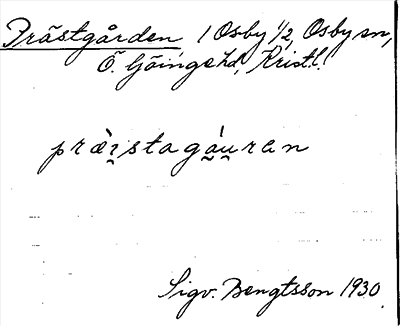 Prästgården 1 Osby 1/2, Osby sn,
Ö. Göinge hd, Krist.l.
præ̀i̯stagá̯u̯ran
Sigv. Bengtsson 1930.